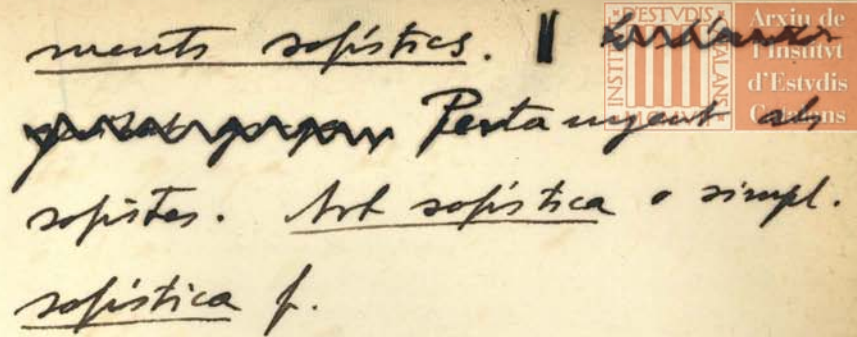 ments sofístics. ‖
Pertanyent als
sofistes. Art sofística o simpl.
sofística f.
INSTITVT D'ESTVDIS CATALANS
Arxiu de
l'Institvt
d'Estvdis
Catalans